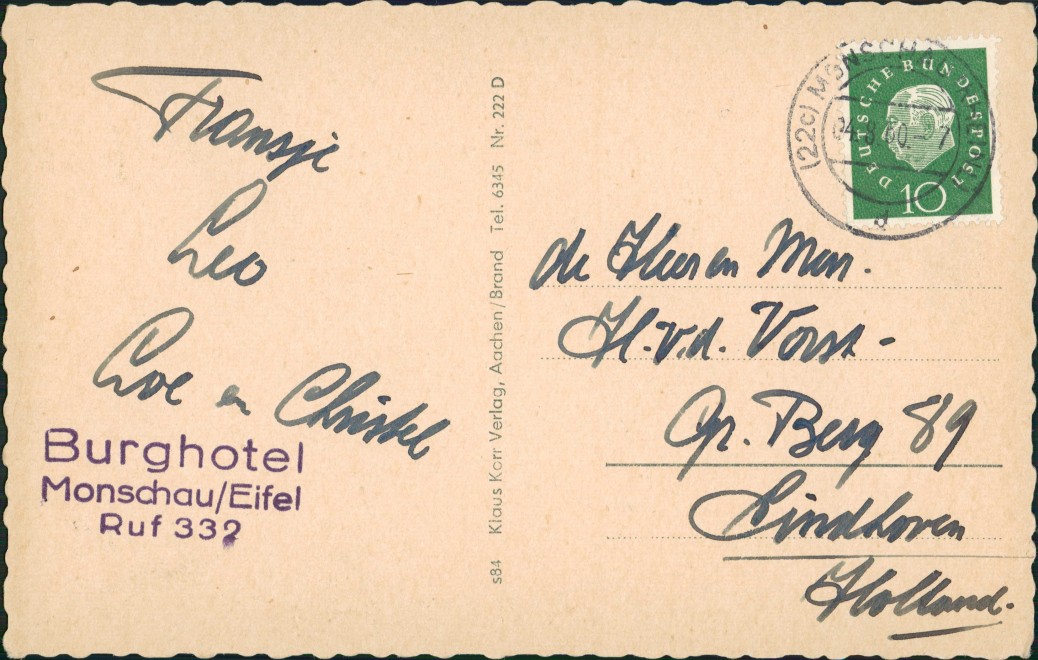 Fransje
Leo
Loe en Christel
Burghotel
Monschau/Eifel
Ruf 332
s84 Klaus Korr Verlag, Aachen/Brand Tel. 6345 Nr. 222 D
(22c) MONSCHA
8.60.
a
DEUTSCHE BUNDESPOST
10
de Heer en Mevr.
H. v.d. Vorst-
Gr. Berg 89
Eindhoven
Holland.